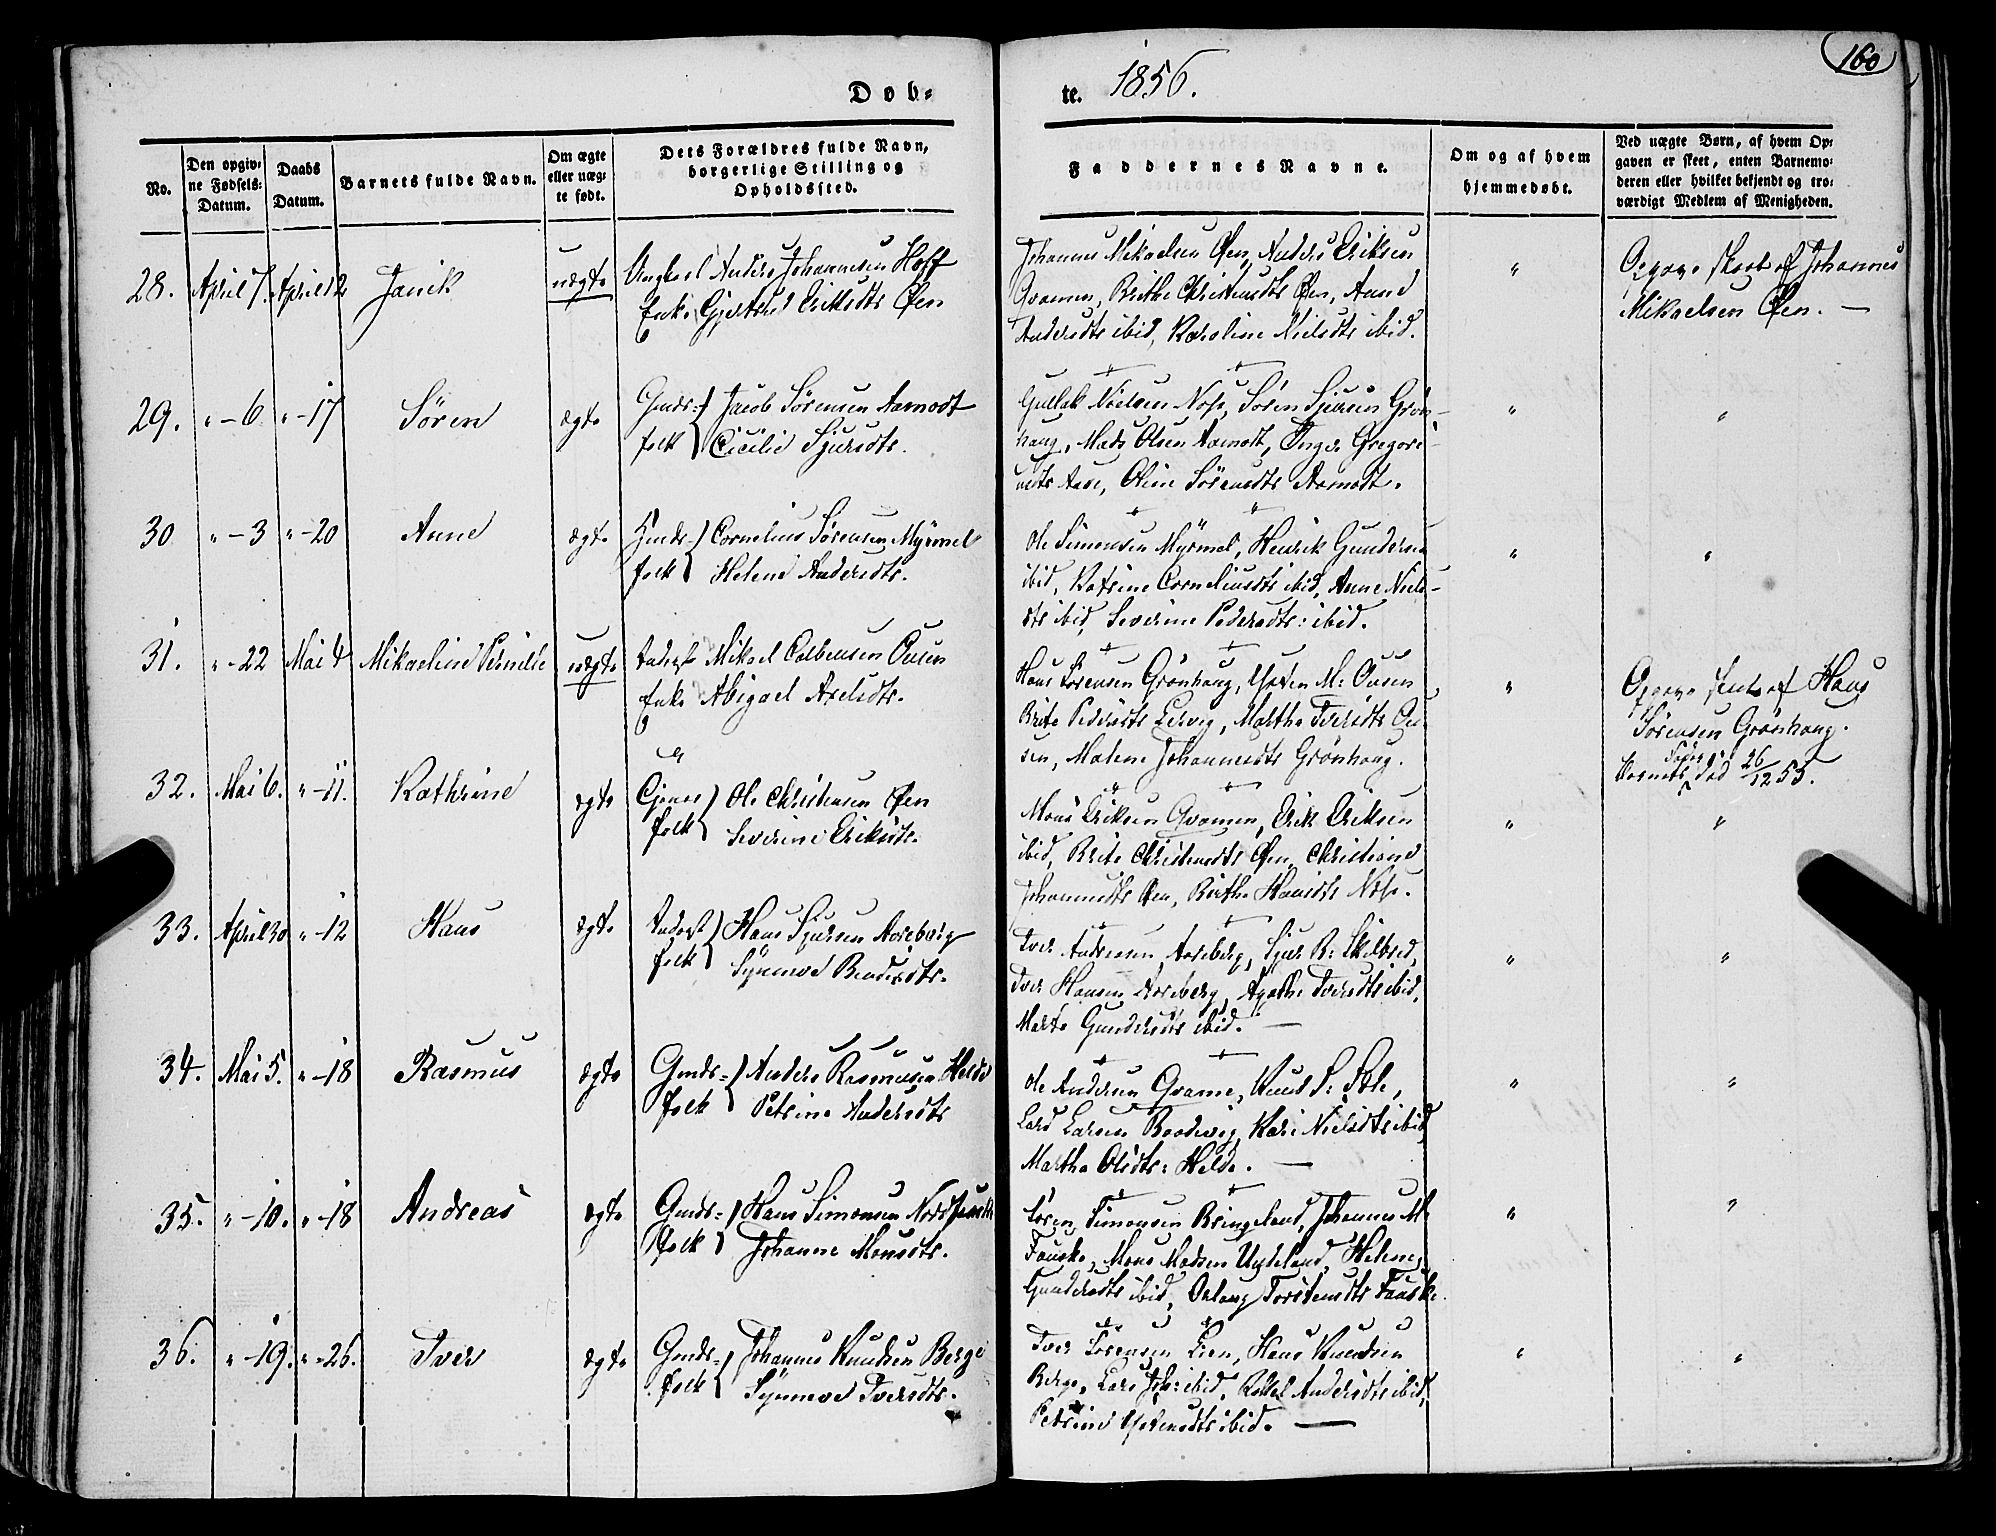 160
Døb-
te. 1856.
No.
Den opgiv-
ne Fødsels-
Datum.
Daabs
Datum.
Barnets fulde Navn.
Om ægte
eller uæg-
te født.
Dets Forældres fulde Navn,
borgerlige Stilling og
Opholdssted.
Faddernes Navne.
Om og af hvem
hjemmedøbt.
Ved uægte Børn, af hvem Op-
gaven er skeet, enten Barnemo-
deren eller hvilket bekjendt og tro-
værdigt Medlem af Menigheden.
28. April 7. April 12 Janik uægte Ungkarl Anders Johannesen Hoff
Enke Gjertrud Eriksdtr Øen
Johannes Mikaelsen Øen, Anders Eriksen
Qvamen, Brithe Christensdtr Øen, Anne
Andersdtr ibid, Karoline Nielsdtr ibid.
"
Opgave skeet af Johannes
Mikaelsen Øen. —
29. " - 6 " - 17 Søren ægte Gmds- Jacob Sørensen Aamodt
folk Cicilie Sjursdtr.
Gullak Nielsen , Søren Sjursen Grøn-
haug, Mads Olsen Aamodt, Inger Gregori-
usdtr Aase, Oline Sörensdtr Aamodt.
" "
30 " - 3 " - 20 Anne ægte Hmds- Cornelius Sørensen Myrmel
folk Helene Andersdtr.
Ole Simonsen Myrmel, Henrik Gundersen
ibid, Katrine Corneliusdtr ibid, Anne Niels-
dtr ibid, Severine Pedersdtr: ibid.
" "
31. " - 22 Mai 4 Mikaeline Pernille uægte Inderst Mikael Colbensen Ousen
Enke Abigael Axelsdtr.
Hans Sørensen Grönhaug, M: Ousen
Brite Pedersdtr Lervig, Marthe Iversdtr Ou-
sen, Malene Johannesdtr Grønhaug.
"
Opgave skeet af Hans
Sørensen Grönhaug.
Barnets Fader død 26/12 55.
32. Mai 6. " - 11. Kathrine ægte Gjener Ole Christensen Øen
folk Severine Eriksdtr.
Mons Eriksen Qvamen, Erik Eriksen
ibid, Brite Christensdtr Øen, Christiane
Johannesdtr Øen, Birthe Hansdtr .
" "
33. April 30 " - 12 Hans ægte Inderst Hans Sjursen Aareberg
folk Synneve Bendixdtr.
Iver Andersen Aareberg, Sjur R: Skilbred,
Iver Hansen Aareberg, Agathe Iversdtr ibid,
Marte Gundersdtr ibid. —
" "
34. Mai 5. " - 18 Rasmus ægte Gmds- Anders Rasmusen Helde
folk Petrine Andersdtr
Ole Andersen Qvame, Knud ,
Lars Larsen , Kari Nielsdtr ibid
Martha Olsdtr: Helde. —
" "
35. " - 10. " - 18 Andreas ægte Gmds- Hans Simonsen
folk Johanne Monsdtr.
Søren Simonsen Bringeland, Johannes M:
Fauske, Mons Madsen , Helene
Gundersdtr ibid, Torstensdtr Fauske.
" "
36. " - 19. " - 26. Iver ægte Gmds- Johannes Knudsen Berge
folk Synneve Iversdtr.
Iver Sørensen Lien, Hans Knudsen
Berge, Lars Joh: ibid, Andersdtr ibid,
Petrine ibid. —
" "